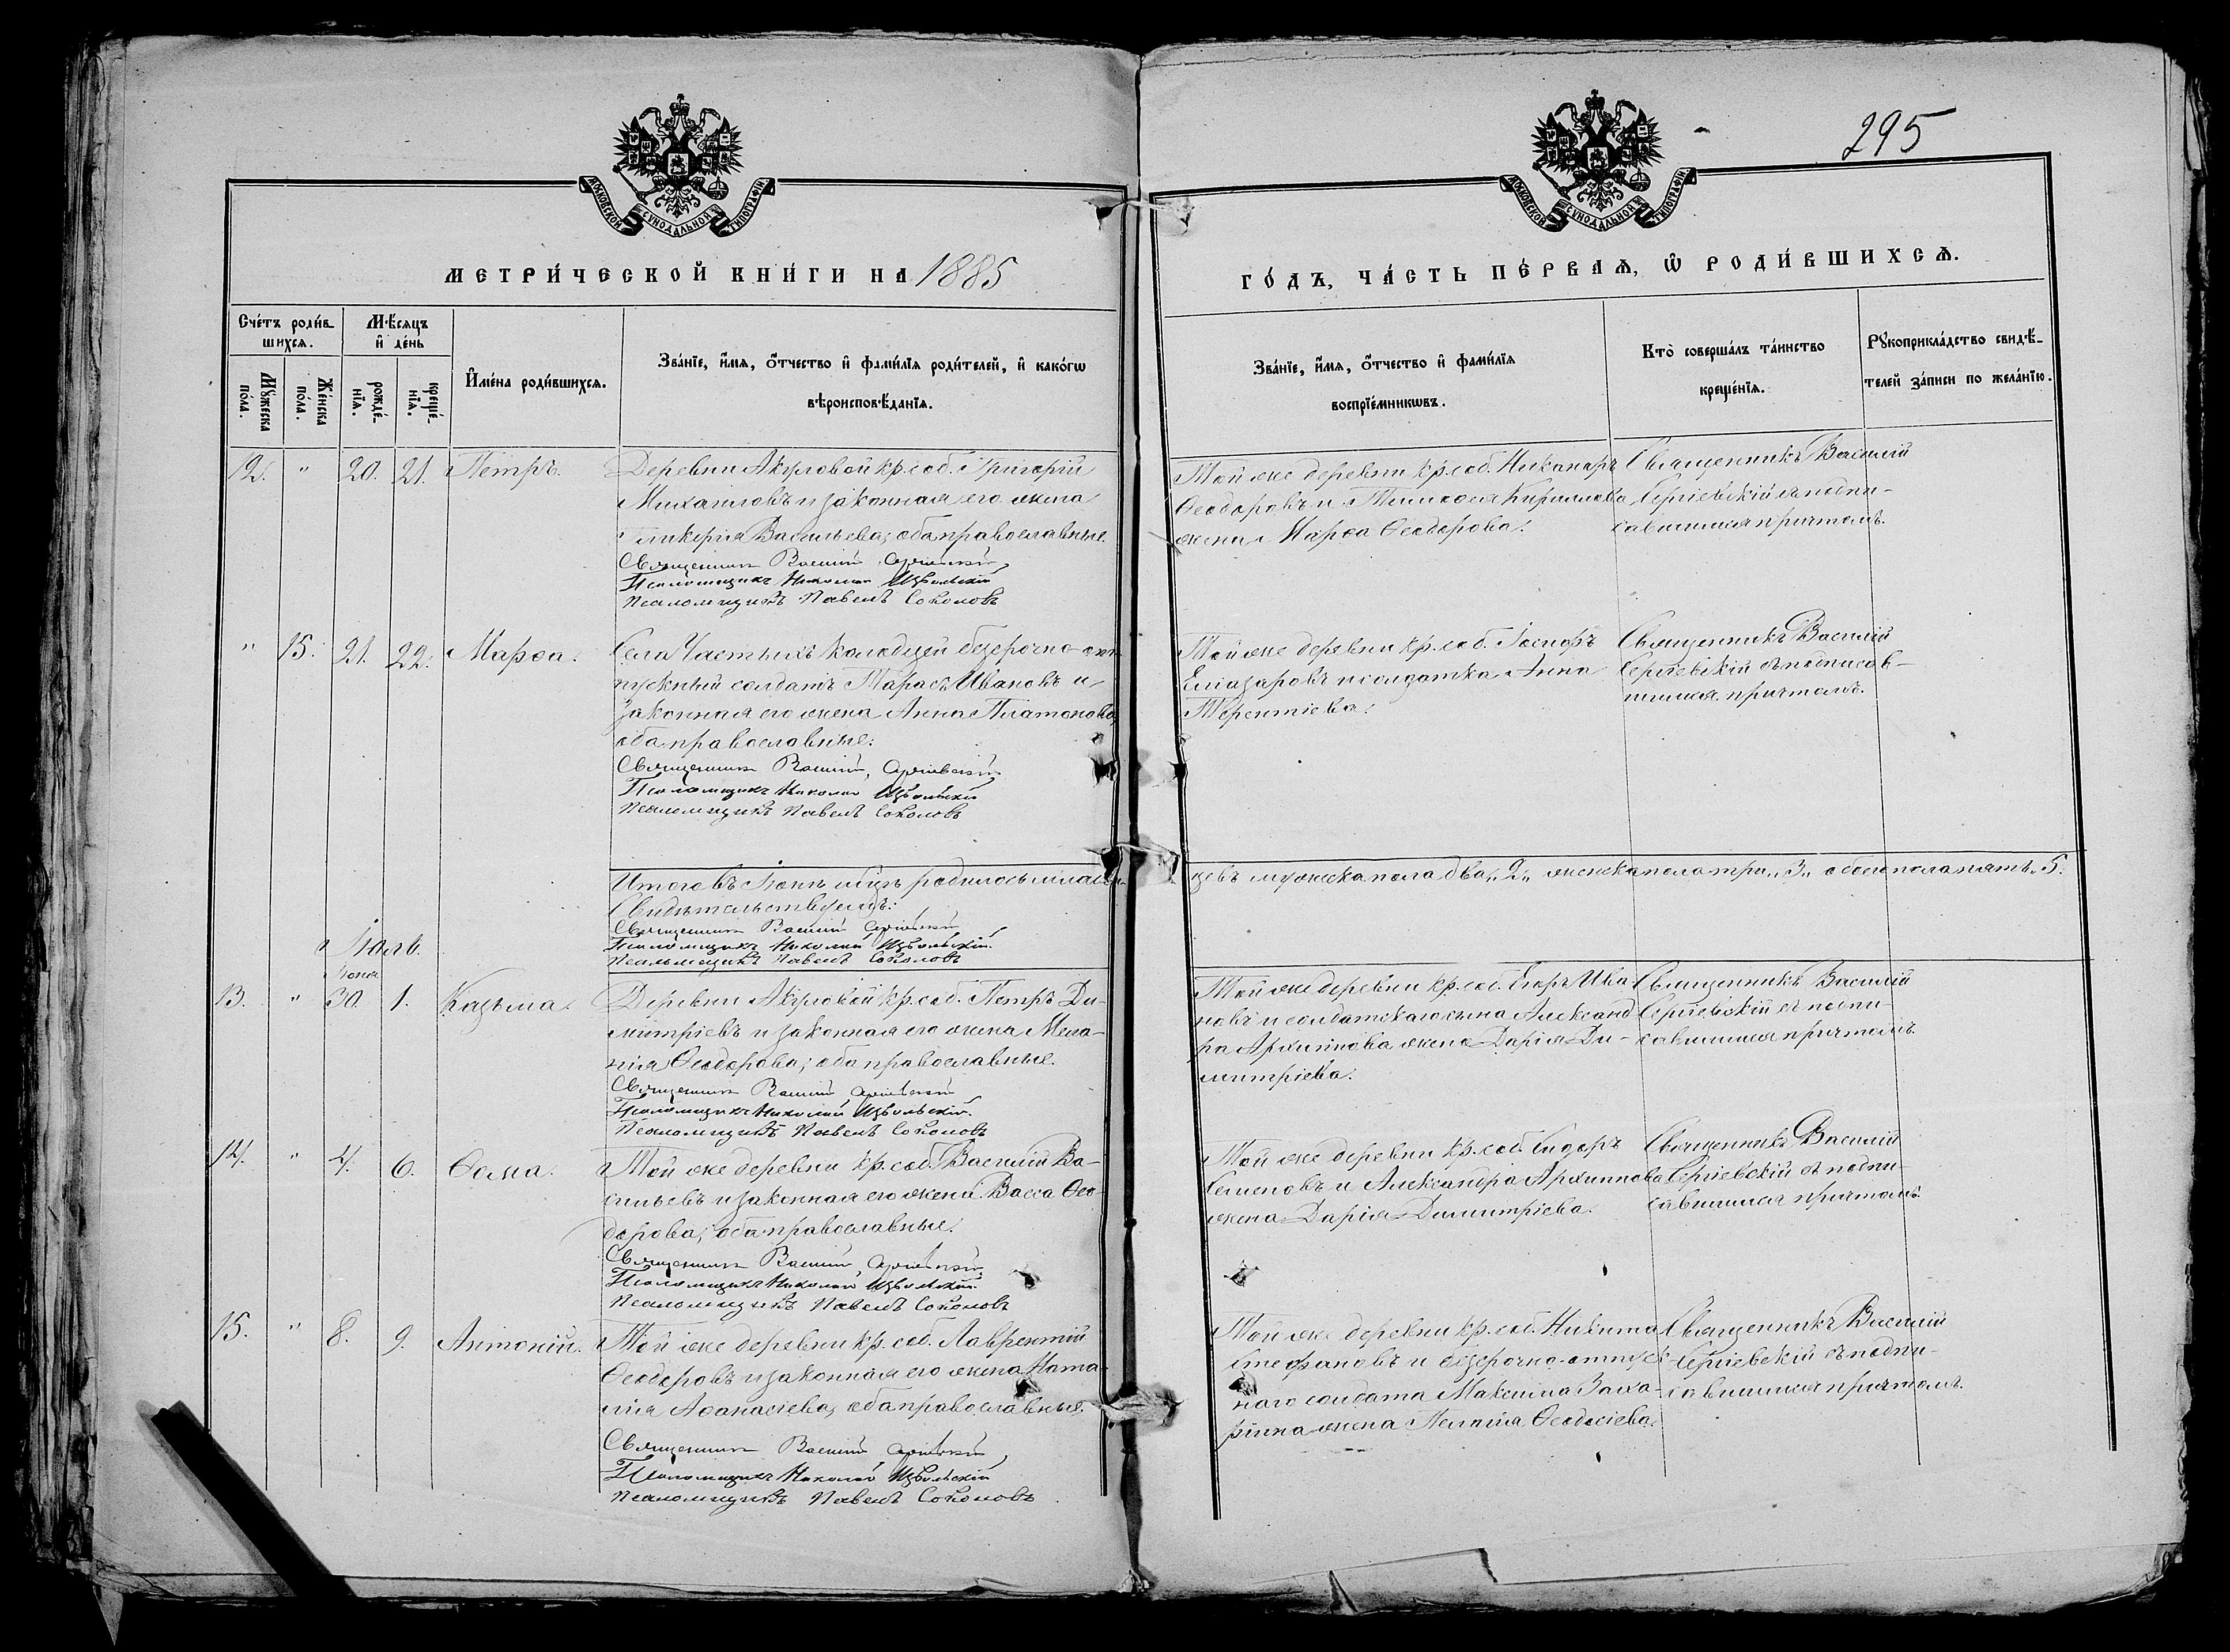 295
МОСКОВСКОЙ СѴНОДАЛЬНОЙ ТИПОГРАФІИ
МОСКОВСКОЙ СѴНОДАЛЬНОЙ ТИПОГРАФІИ
МЕТРИ́ЧЕСКОЙ КНИ́ГИ НА 1885
ГО́ДЪ, ЧА́СТЬ ПЕ́РВАѦ, Ѽ РОДИ́ВШИХСѦ.
Сче́тъ роди́в-
шихсѧ.
Мѣ́сѧцъ
и҆ де́нь
Мꙋ́жеска
по́ла.
Же́нска
по́ла.
рожде́-
нїѧ.
креще́-
нїѧ.
И҆мена̀ роди́вшихсѧ.
Зва́нїе, и҆́мѧ, ѻ҆́тчество и҆ фами́лїѧ роди́телей, и҆ како́гѡ
вѣроисповѣ́данїѧ.
Зва́нїе, и҆́мѧ, ѻ҆́тчество и҆ фами́лїѧ
воспрїе́мникѡвъ.
Кто̀ соверша́лъ та́инство
креще́нїѧ.
Рꙋкоприкла́дство свидѣ́-
телей за́писи по жела́нїю.
12. " 20. 21. Петръ.
Деревни Акуловой кр. соб. Григорій
Михаиловъ и законная его жена
Гликерія Васильева; оба православные.
Священникъ Василій Сергіевскій
Псаломщикъ Николай Извольскій
Псаломщикъ Павелъ Соколовъ
Той же деревни кр. соб. Никаноръ
Ѳеодоровъ и Тимоѳея Кириллова
жена Марѳа Ѳеодорова.
Священникъ Василій
Сергіевскій съ подпи-
савшимся причтомъ.
" 15. 21. 22. Марѳа.
Села Частыхъ Колодезей безсрочно-от-
пускный солдатъ Тарасъ Ивановъ и
законная его жена Анна Платонова,
оба православные.
Священникъ Василій Сергіевскій
Псаломщикъ Николай Извольскій
Псаломщикъ Павелъ Соколовъ
Той же деревни кр. соб.
Елиазаровъ и солдатка Анна
Терентіева.
Священникъ Василій
Сергіевскій съ подписав-
шимся причтомъ.
Итого въ Іюнѣ мѣцѣ родилось младен-
цевъ мужеска пола два „2„ женска пола три „3„ обоего пола пять „5.
Свидѣтельствуемъ:
Священникъ Василій Сергіевскій
Псаломщикъ Николай Извольскій
Псаломщикъ Павелъ Соколовъ
Іюль.
Іюня
13. " 30. 1. Казьма.
Деревни Акуловой кр. соб. Петръ Ди-
митріевъ и законная его жена Мела-
нія Ѳеодорова; оба православные.
Священникъ Василій Сергіевскій
Псаломщикъ Николай Извольскій.
Псаломщикъ Павелъ Соколовъ
Той же деревни кр. соб. Егоръ Ива-
новъ и солдатскаго сына Александ-
ра Архиппова жена Дарія Ди-
митріева.
Священникъ Василій
Сергіевскій съ подпи-
савшимся причтомъ.
14. " 4. 6. Ѳома.
Той же деревни кр. соб. Василій Ва-
сильевъ и законная его жена Васса Ѳео-
дорова; оба православные.
Священникъ Василій Сергіевскій
Псаломщикъ Николай Извольскій.
Псаломщикъ Павелъ Соколовъ
Той же деревни кр. соб. Сидоръ
Семеновъ и Александра Архиппова
жена Дарія Димитріева.
Священникъ Василій
Сергіевскій съ подпи-
савшимся причтомъ.
15. " 8. 9. Антоній.
Той же деревни кр. соб. Лаврентій
Ѳеодоровъ и законная его жена Ната-
лія Аѳанасіева, оба православные.
Священникъ Василій Сергіевскій
Псаломщикъ Николай Извольскій
Псаломщикъ Павелъ Соколовъ
Той же деревни кр. соб. Никита
Стефановъ и безсрочно-отпуск-
наго солдата Максима Заха-
ріина жена Пелагія Ѳеодосіева.
Священникъ Василій
Сергіевскій съ подпи-
савшимся причтомъ.